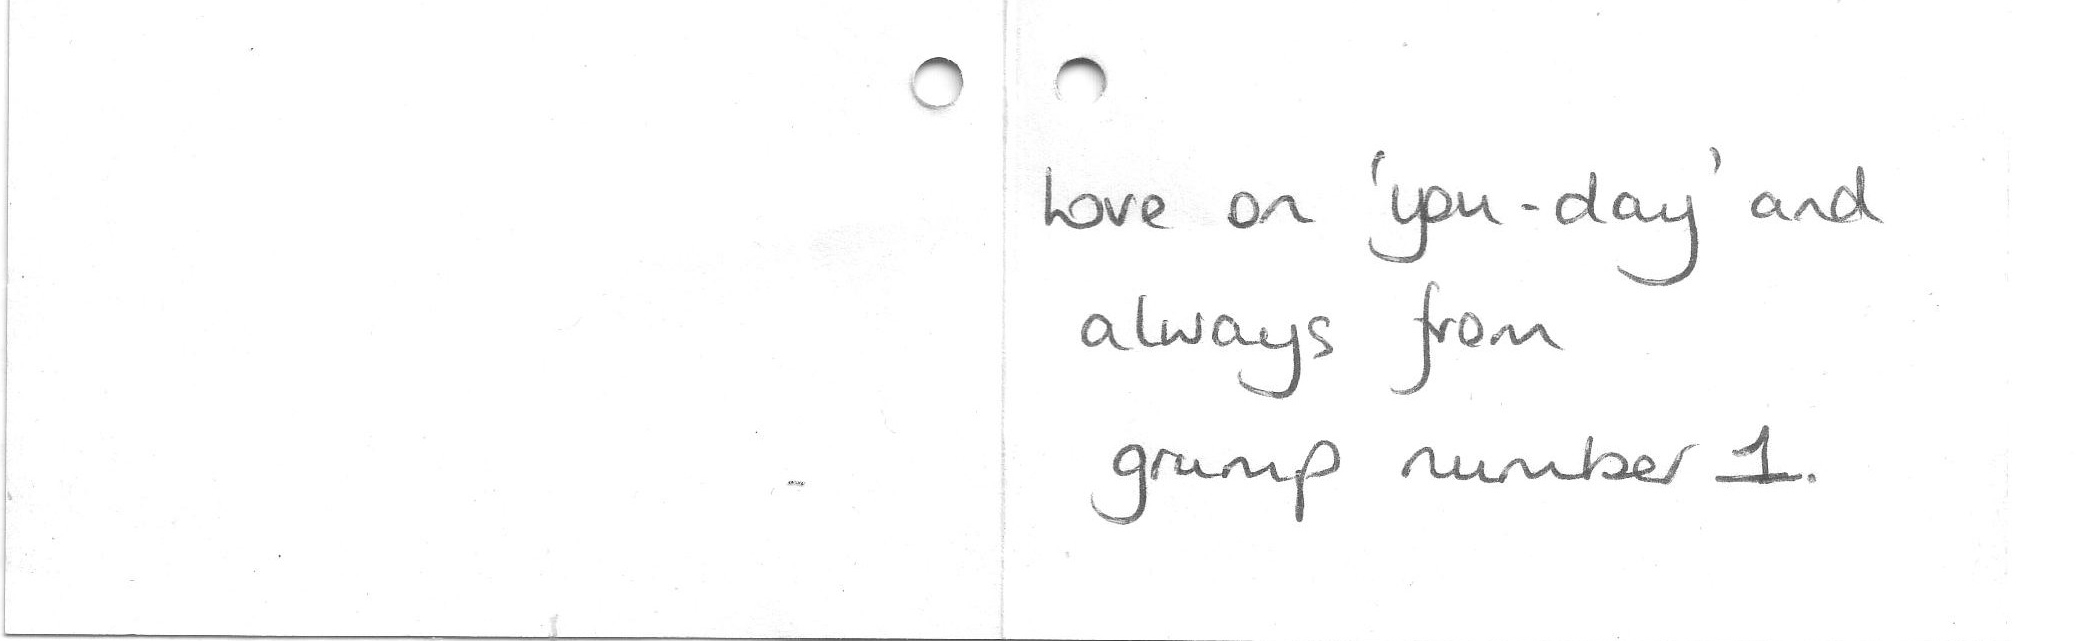 Love on 'you-day' and
always from
grump number 1.